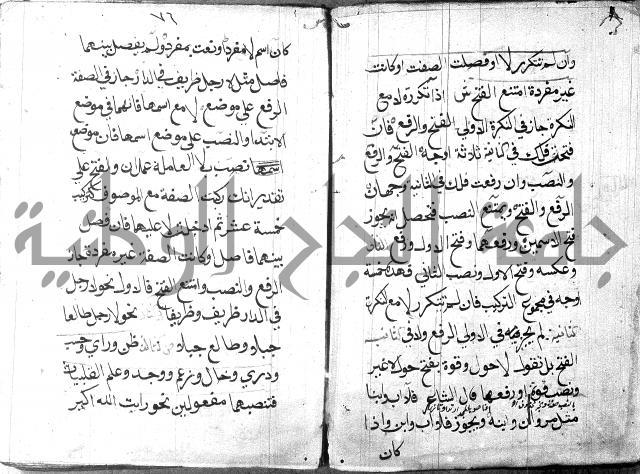 وان لم تتكرر لا او فصلت الصفت او كانت
غير مفردة امتنع الفتح ش اذا تكررت لا مع
النكرة جاز في النكرة الاولى الفتح والرفع فان
فتحت فلك في الثانية ثلاثة اوجه الفتح والرفع
والنصب وان رفعت فلك في الثانية وجهان
الرفع والفتح ويمتنع النصب فتحصل انه يجوز
فتح الاسمين ورفعهما وفتح الاول ورفع الثاني
وعكسه وفتح الاول ونصب الثاني فهذه خمسة
اوجه في مجموع التركيب فان لم تتكرر لا مع النكرة
الثانية لم يجز في الاولى الرفع ولا في الثانية
الفتح بل تقول لا حول وقوة بفتح حول لا غير
ونصب قوة ورفعها قال الشاعر فلا اب وابنا
مثل مروان وابنه ويجوز فلا اب وابن واذا
كان
٧٦
كان اسم لا مفردا ونعت بمفرد ولم يفصل بينهما
فاصل مثل لا رجل ظريف في الدار جاز في الصفة
الرفع على موضع لا مع اسمها فانهما في موضع
الابتداء والنصب على موضع اسمها فان موضع
نصب بلا العاملة عمل ان والفتح على
تقدير انك ركبت الصفة مع الموصوف كتركيب
خمسة عشر ثم ادخلت لا عليها فان فصل
بينهما فاصل او كانت الصفة غير مفردة جاز
الرفع والنصب وامتنع الفتح فالاول نحو لا رجل
في الدار ظريف وظريفا نحو لا رجل طالعا
جبلا وطالع جبلا ظن وراى وحسب
ودرى وخال وزعم ووجد وعلم القلبية
فتنصبهما مفعولين نحو رايت الله اكبر